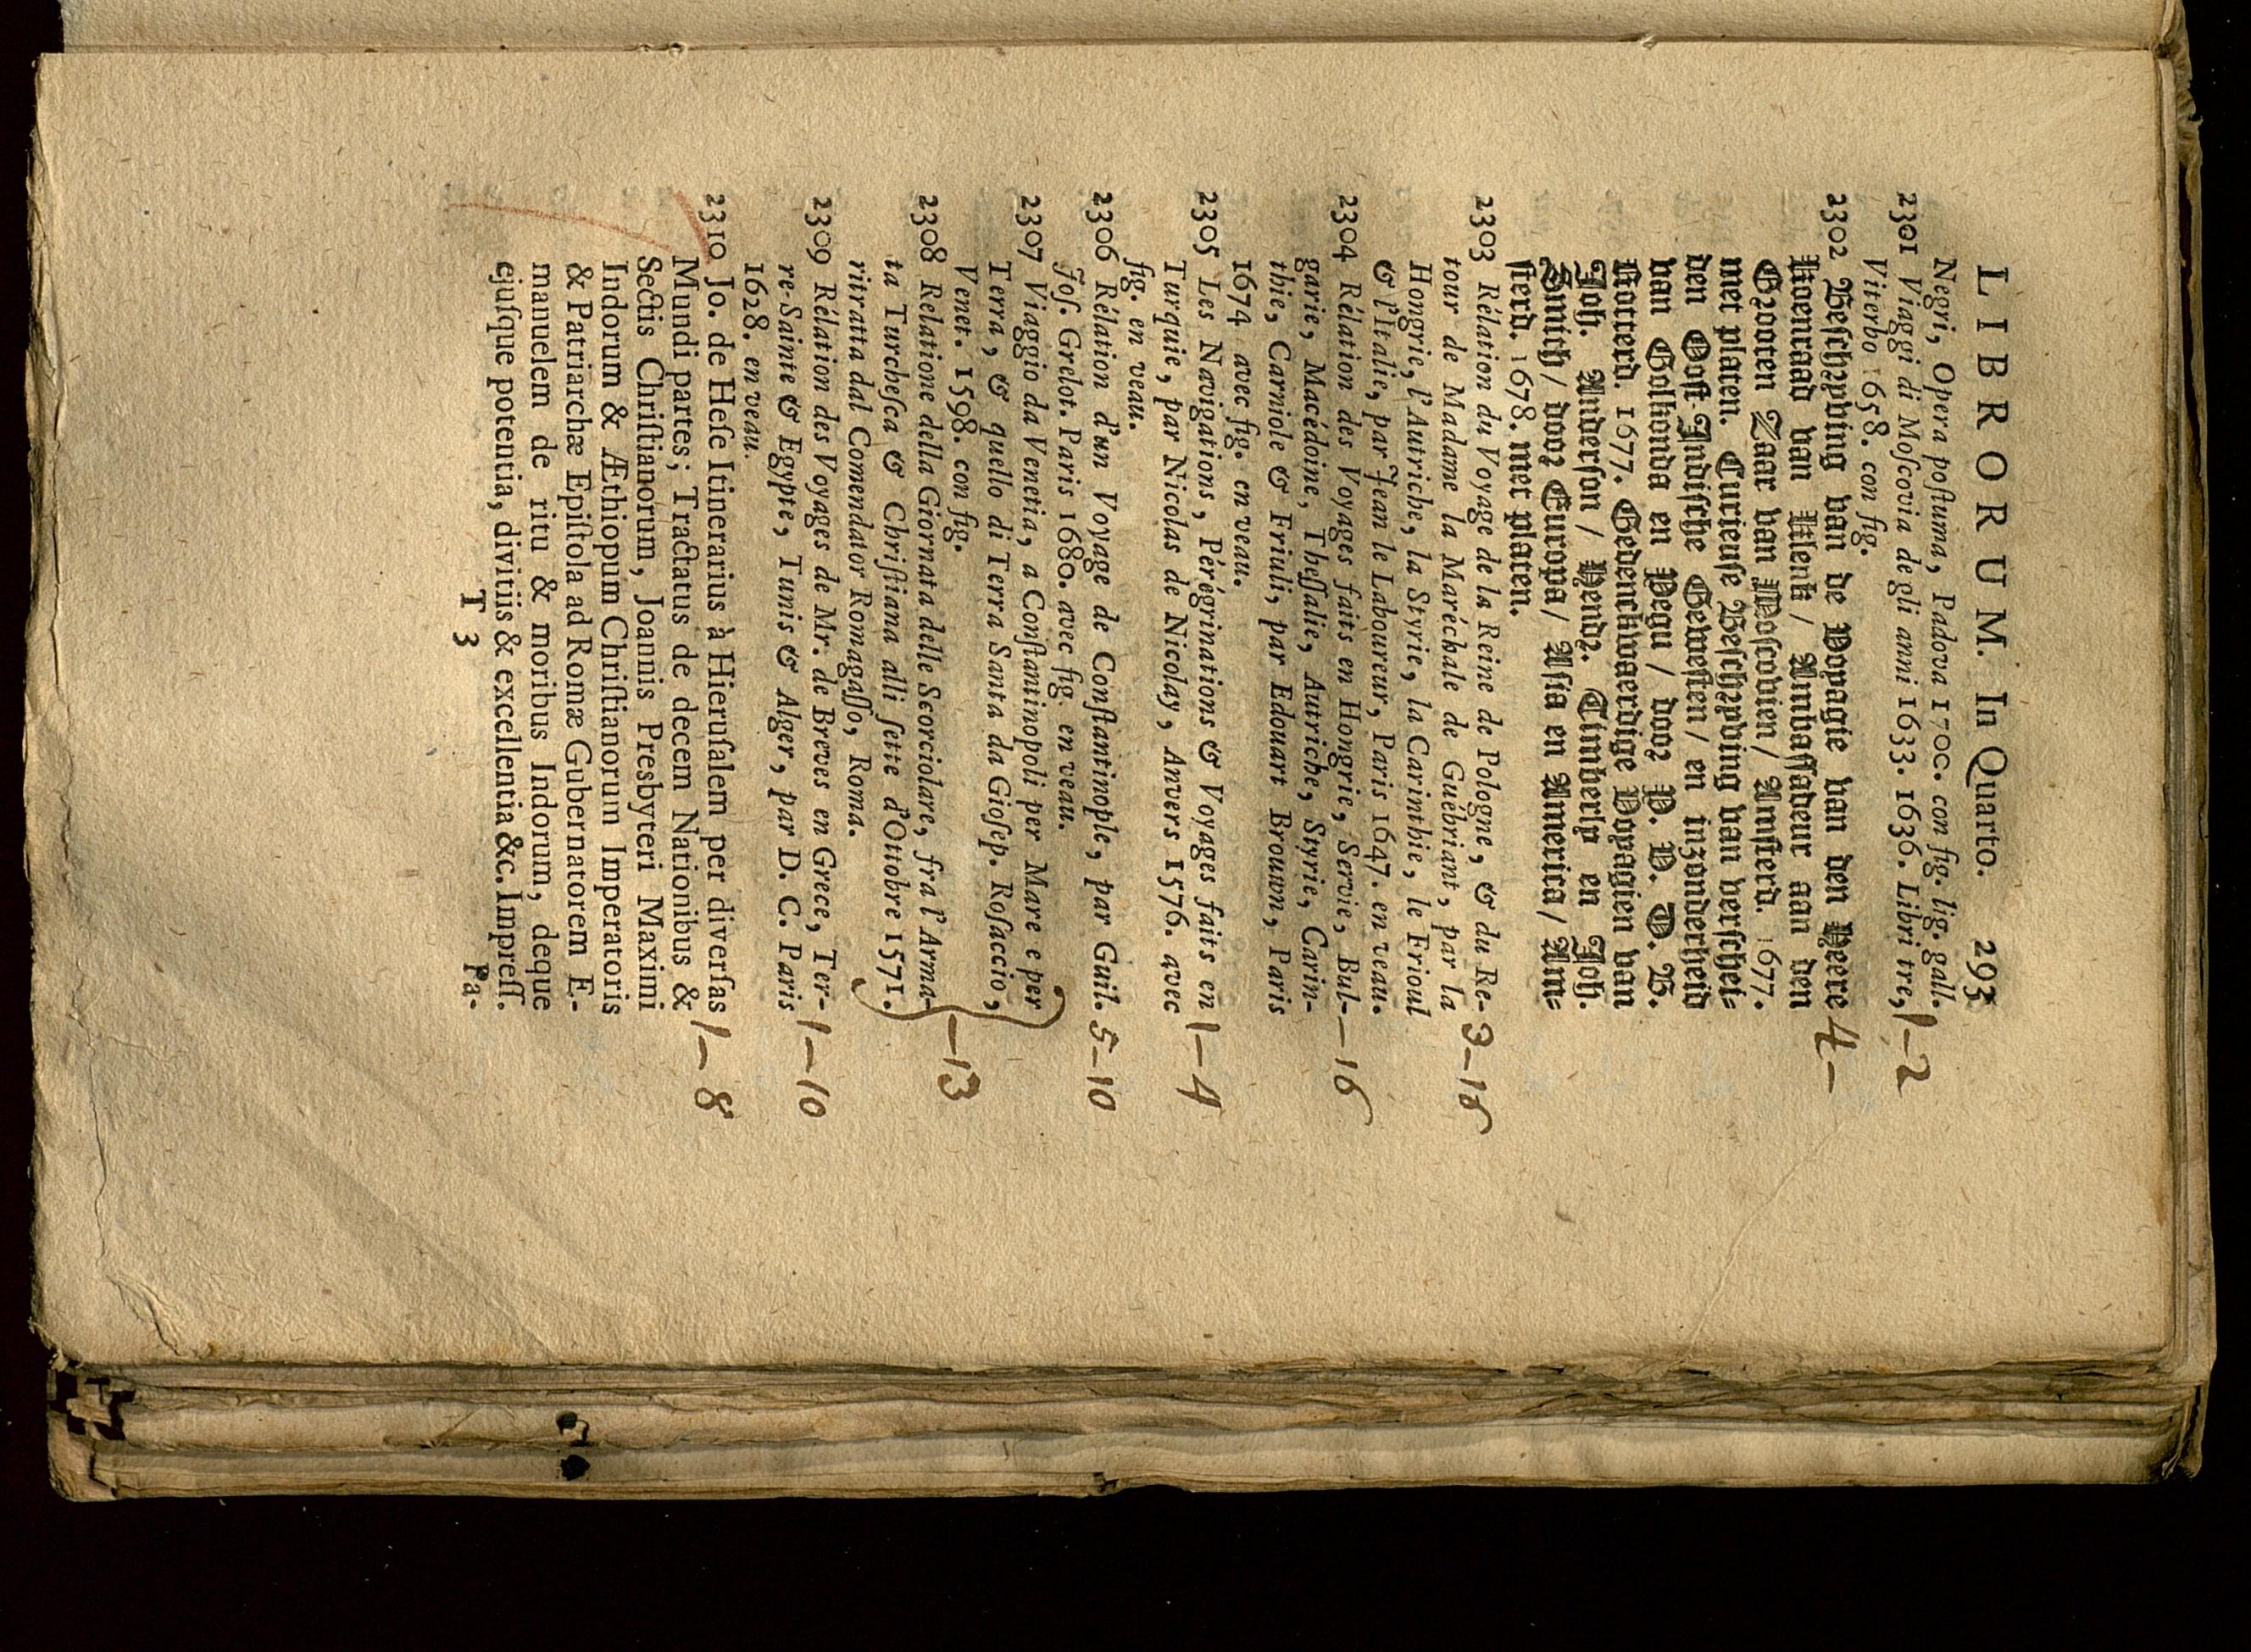 LIBRORUM. In Quarto. 293
Negri, Opera poſtuma, Padova 1700. con fig. lig. gall.
2301 Viaggi di Moſcovia de gli anni 1633. 1636. Libri tre, 1—2
Viterbo 1658. con fig.
2302 Beſchryving van de Voyagie van den Heere 4—
Koenraad van Klenk / Ambaſſadeur aan den
Grooten Zaar van Moſcovien / Amſterd. 1677.
met platen. Curieuſe Beſchryving van verſchei-
den Ooſt-Indiſche Geweſten / en inzonderheid
van Golkonda en Pegu / door P. V. D. B.
Rotterd. 1677. Gedenckwaerdige Voyagien van
Joh. Anderſon / Hendr. Timberly en Joh.
Smith / door Europa / Aſia en America / Am-
ſterd. 1678. met platen.
2303 Rélation du Voyage de la Reine de Pologne, & du Re- 3—16
tour de Madame la Maréchale de Guébriant, par la
Hongrie, l'Autriche, la Styrie, la Carinthie, le Frioul
& l'Italie, par Jean le Laboureur, Paris 1647. en veau.
2304 Rélation des Voyages faits en Hongrie, Servie, Bul- —16
garie, Macédoine, Theſſalie, Autriche, Styrie, Carin-
thie, Carniole & Friuli, par Edouart Brouwn, Paris
1674 avec fig. en veau.
2305 Les Navigations, Pérégrinations & Voyages faits en 1—4
Turquie, par Nicolas de Nicolay, Anvers 1576. avec
fig. en veau.
2306 Rélation d'un Voyage de Conſtantinople, par Guil. 5—10
Joſ. Grelot. Paris 1680. avec fig. en veau.
2307 Viaggio da Venetia, a Conſtantinopoli per Mare e per
Terra, & quello di Terra Santa da Gioſep. Roſaccio,
Venet. 1598. con fig. —13
2308 Relatione della Giornata delle Scorciolare, fra l'Arma-
ta Turcheſca & Chriſtiana alli ſette d'Ottobre 1571.
ritratta dal Comendator Romagaſſo, Roma.
2309 Rélation des Voyages de Mr. de Breves en Grece, Ter- 1—10
re-Sainte & Egypte, Tunis & Alger, par D. C. Paris
1628. en veau.
2310 Jo. de Heſe Itinerarius à Hieruſalem per diverſas 1—8
Mundi partes; Tractatus de decem Nationibus &
Sectis Chriſtianorum, Joannis Presbyteri Maximi
Indorum & Æthiopum Chriſtianorum Imperatoris
& Patriarchæ Epiſtola ad Romæ Gubernatorem E-
manuelem de ritu & moribus Indorum, deque
ejuſque potentia, divitiis & excellentia &c. Impreſſ.
T 3 Pa-